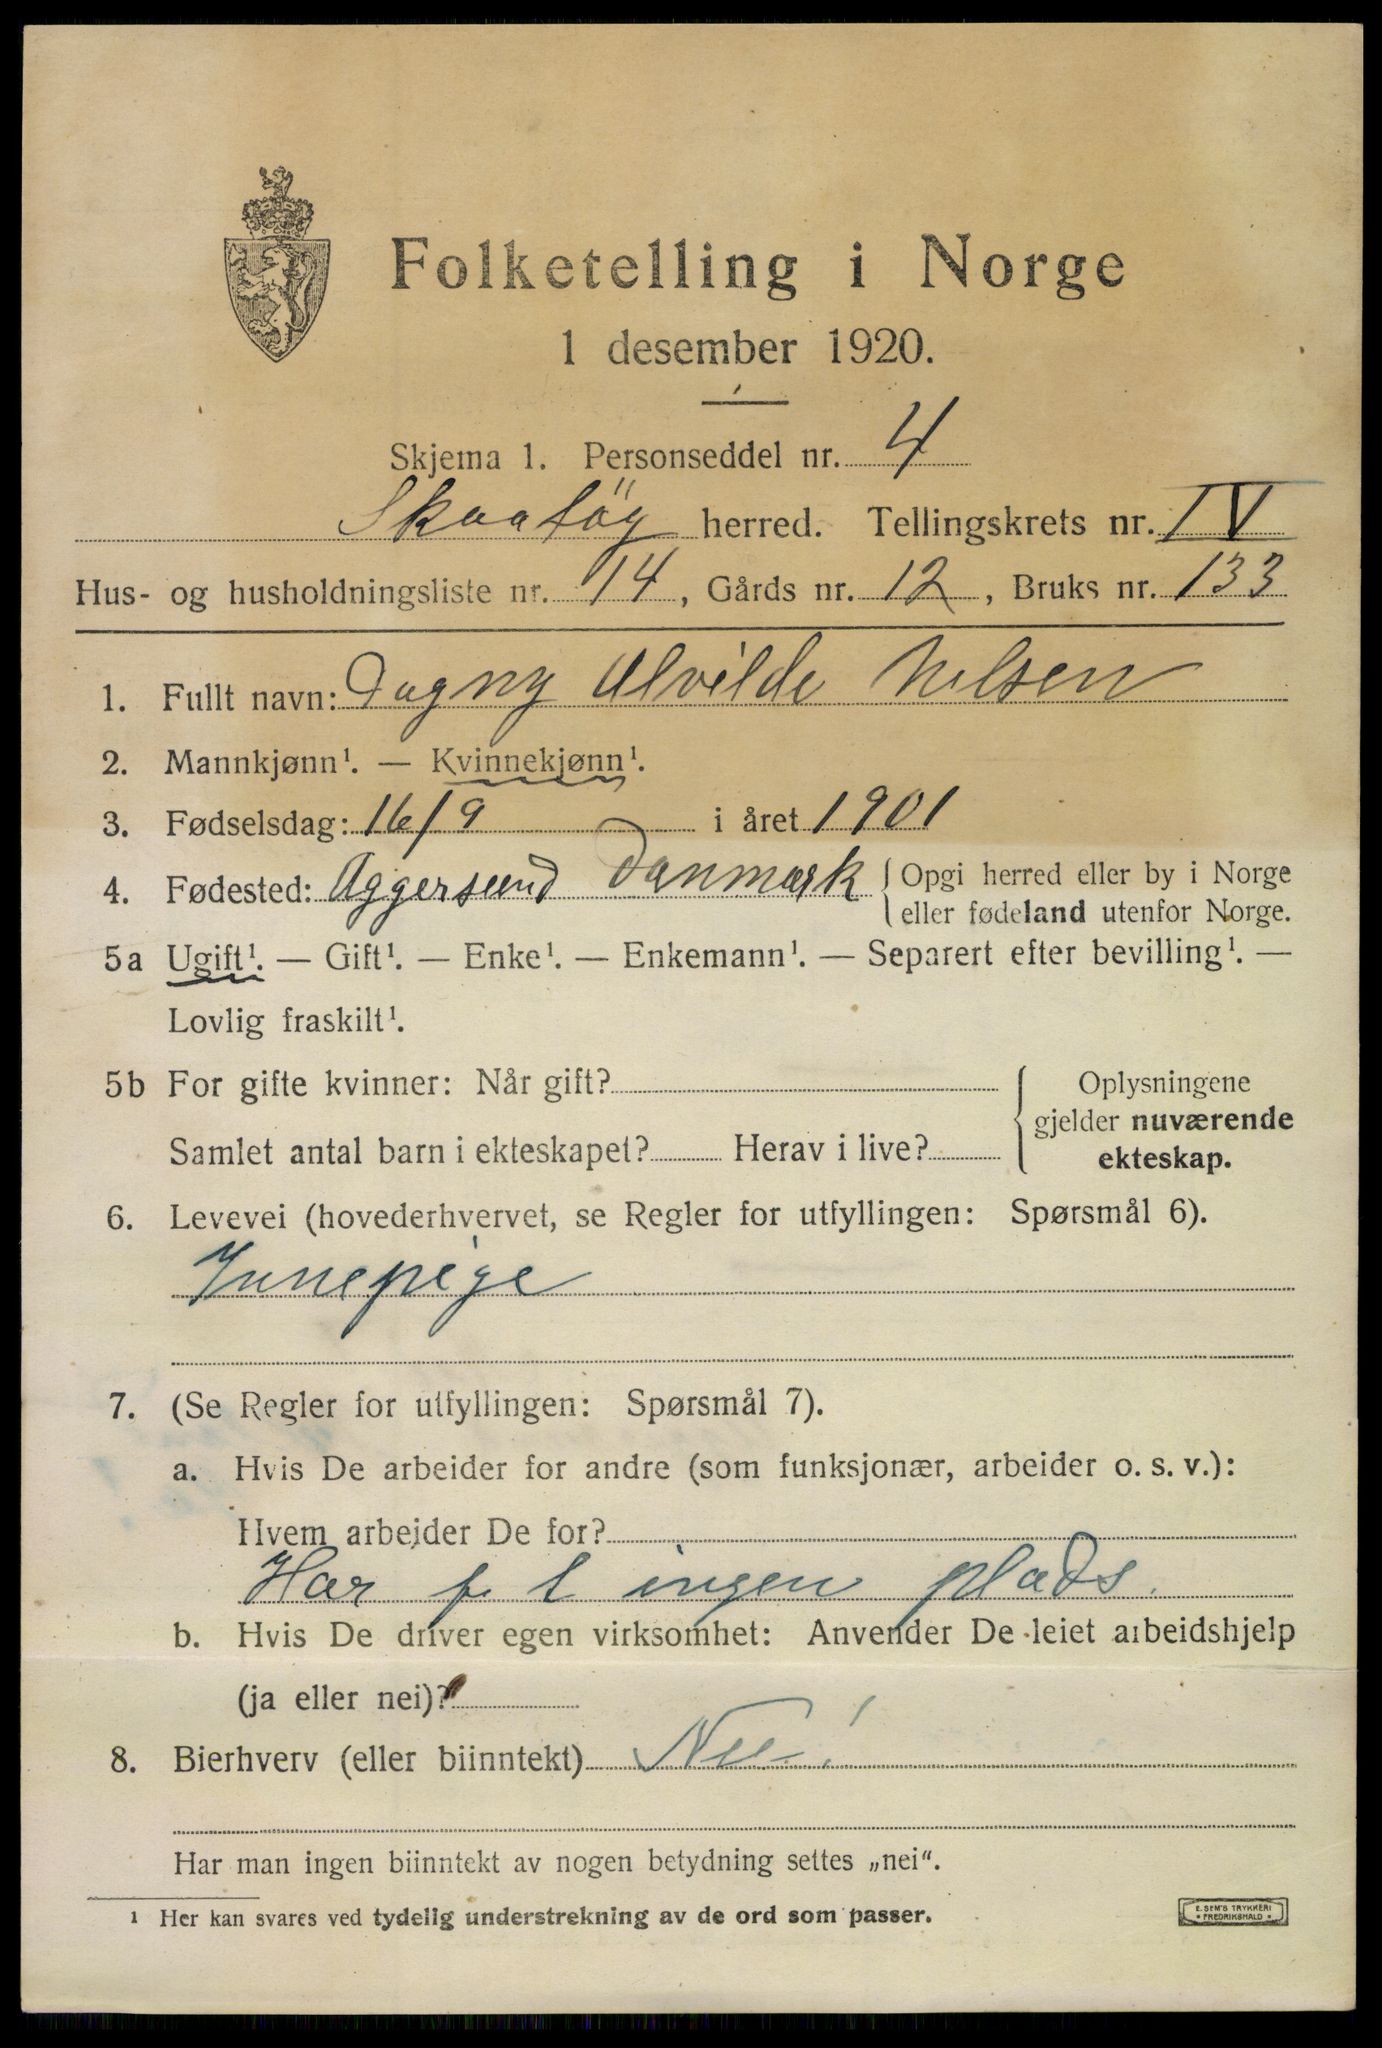 Folketelling i Norge
1 desember 1920.
Skjema 1. Personseddel nr. 4
Skaatöy herred. Tellingskrets nr. IV
Hus- og husholdningsliste nr. 14, Gårds nr. 12, Bruks nr. 133
1. Fullt navn: Dagny Alvilde Nilsen
2. Mannkjønn¹. — Kvinnekjønn¹.
3. Fødselsdag: 16/9 i året 1901
4. Fødested: Aggersund Danmark { Opgi herred eller by i Norge
eller fødeland utenfor Norge.
5a Ugift¹. — Gift¹. — Enke¹. — Enkemann¹. — Separert efter bevilling¹. —
Lovlig fraskilt¹.
5b For gifte kvinner: Når gift? { Oplysningene
gjelder nuværende
Samlet antal barn i ekteskapet? Herav i live? ekteskap.
6. Levevei (hovederhvervet, se Regler for utfyllingen: Spørsmål 6).
Innepige
7. (Se Regler for utfyllingen: Spørsmål 7).
a. Hvis De arbeider for andre (som funksjonær, arbeider o. s. v.):
Hvem arbeider De for?
Har f. t ingen plads.
b. Hvis De driver egen virksomhet: Anvender De leiet arbeidshjelp
(ja eller nei)?
8. Bierhverv (eller biinntekt) Nei!
Har man ingen biinntekt av nogen betydning settes „nei“.
¹ Her kan svares ved tydelig understrekning av de ord som passer.
E. SEM'S TRYKKERI
• FREDRIKSHALD •